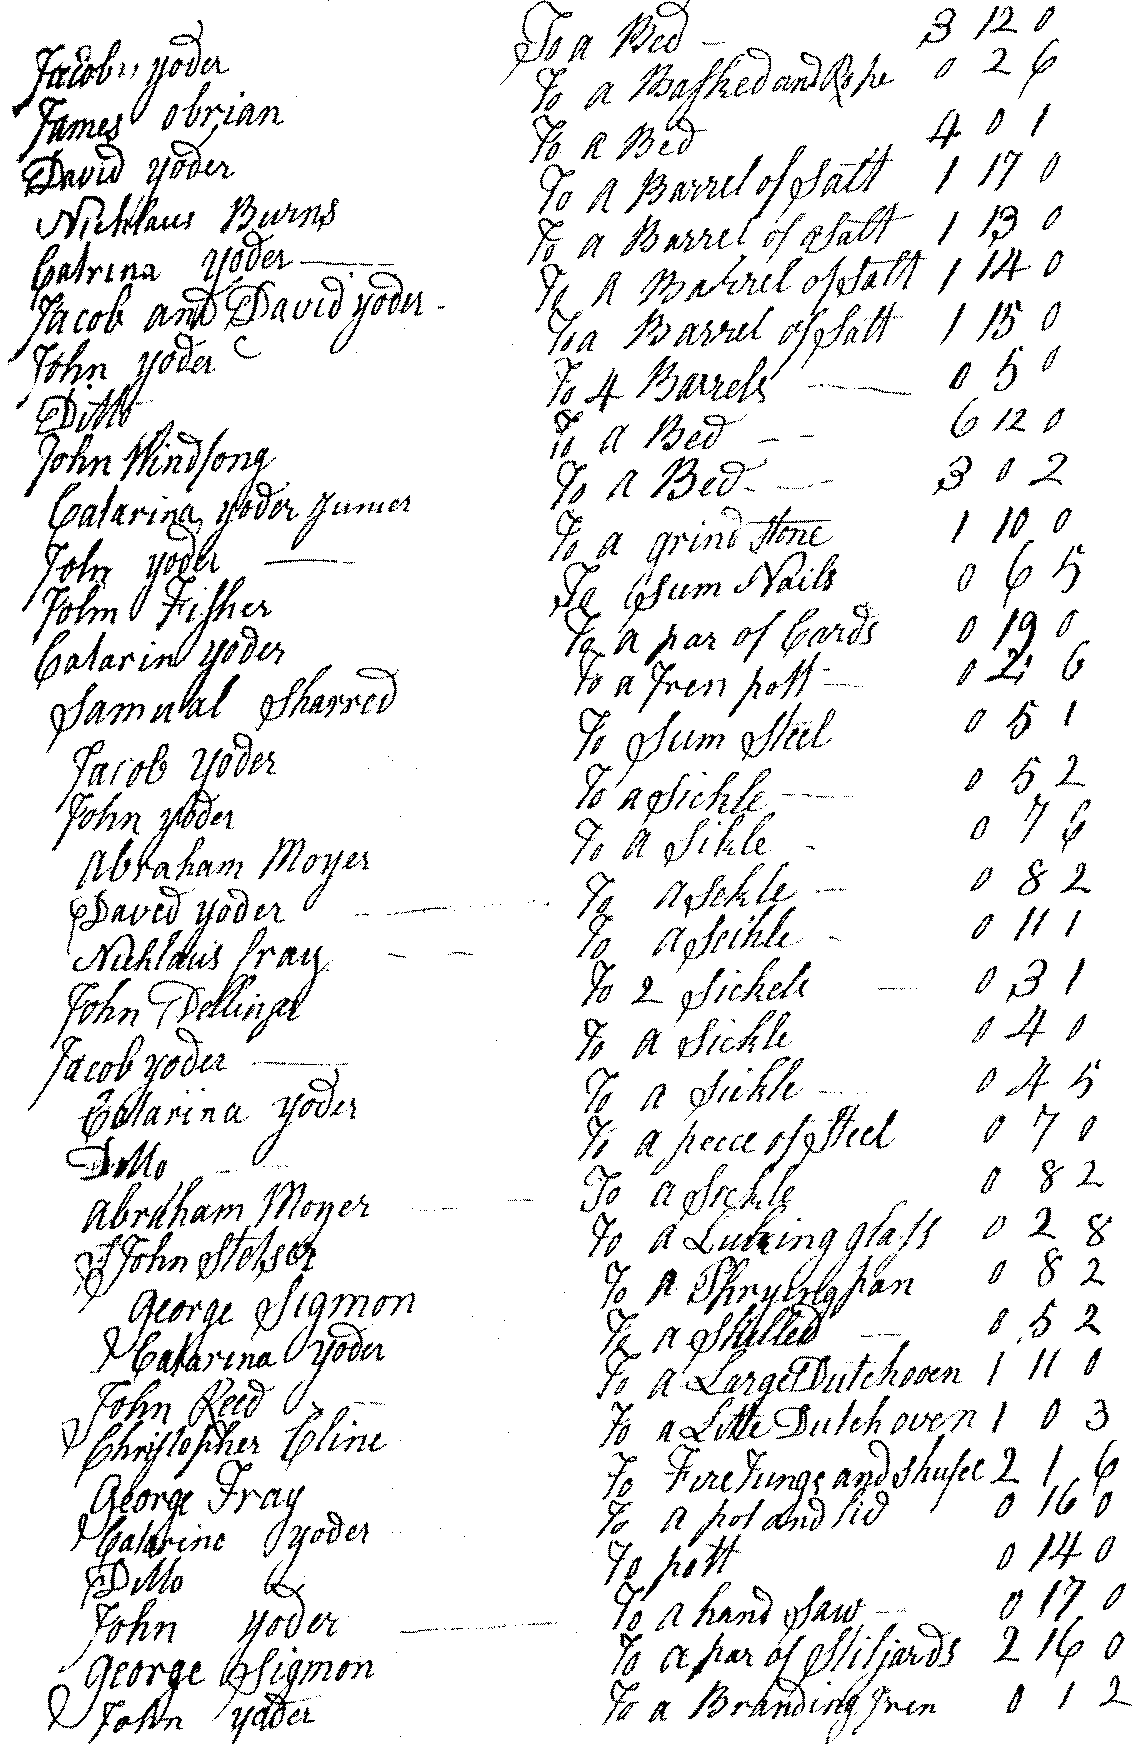 Jacob yoder To a Bed 3 12 0
James Obrian To a Basked and Rope 0 2 6
David yoder To a Bed 4 0 1
Nichlaus Burns To a Barrel of Saltt 1 17 0
Catrina yoder To a Barrel of Saltt 1 13 0
Jacob and David yoder To a Barrel of Saltt 1 14 0
John yoder To a Barrel of Saltt 1 15 0
Ditto To 4 Barrels 0 5 0
John Windsong To a Bed 6 12 0
Catarina yoder Junier To a Bed 3 0 2
John yoder To a grind Stone 1 10 0
John Fisher To Sum Nails 0 6 5
Catarin yoder To a par of Cards 0 19 0
Samual Sharred To a Iren pott 0 2 6
Jacob yoder To Sum Steel 0 5 1
John yoder To a Sichle 0 5 2
Abraham Moyer To a Sikle 0 7 6
David yoder To a Sekle 0 8 2
Nichlaus fray To a Seihle 0 11 1
John Dellinger To 2 Sickels 0 3 1
Jacob yoder To a Sickle 0 4 0
Catarina yoder To a Sickle 0 4 5
Ditto To a peece of Steel 0 7 0
Abraham Moyer To a Sickle 0 8 2
John Stelser To a Luking glass 0 2 8
George Sigmon To a Phrying pan 0 8 2
Catarina yoder To a Skilled 0 5 2
John Reed To a Large Dutchoven 1 11 0
Christopher Cline To a Little Dutch oven 1 0 3
George Fray To Fire Tungs and Shufel 2 1 6
Catarine yoder To a pot and lid 0 16 0
Ditto To pott 0 14 0
John yoder To a hand Saw 0 17 0
George Sigmon To a par of Stiljards 2 16 0
John yoder To a Branding Iren 0 1 2